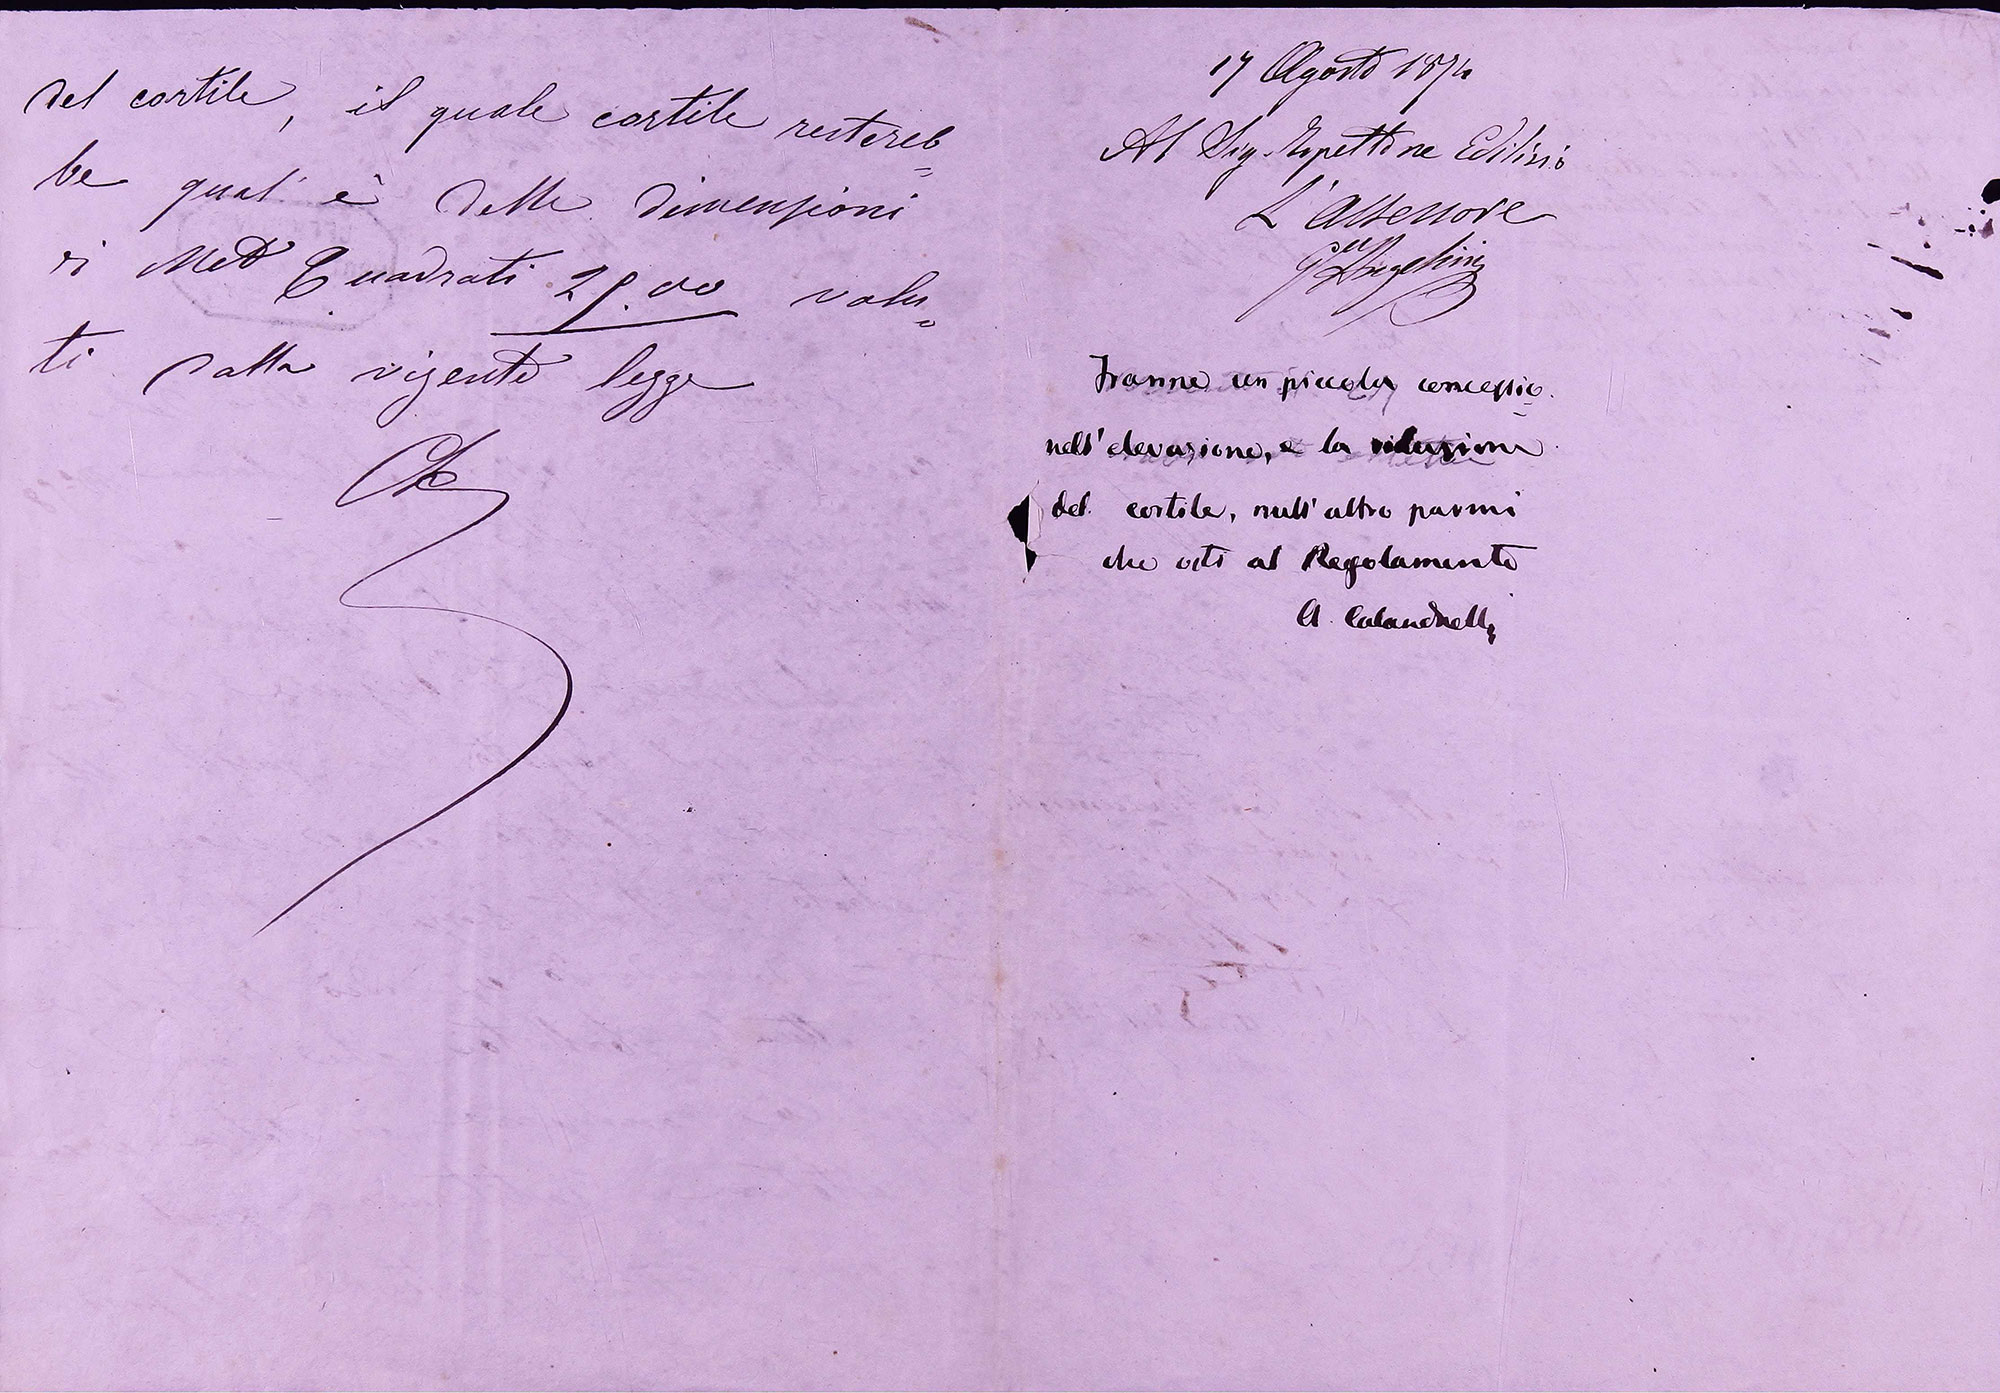 del cortile, il quale cortile restereb=
be qual' è delle dimensioni
di Met Quadrati 25.00 volu=
ti dalla vigente legge
17 Agosto 1874
Al Sig. Ispettore Edilizio
L'Assessore
Angelini
Tranne un piccola concessio=
nell'elevazione, e la riduzione
del cortile, null'altro parmi
che osti al Regolamento
A. Calandrelli